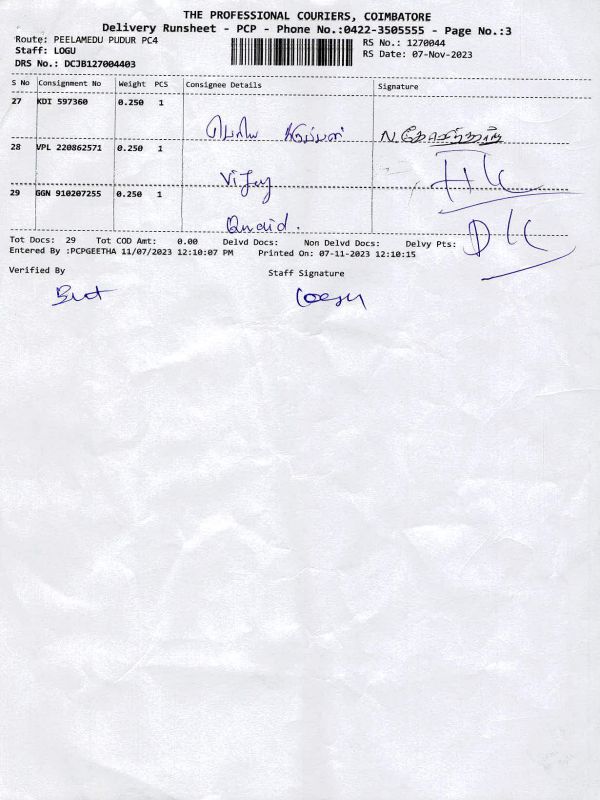 THE PROFESSIONAL COURIERS, COIMBATORE
Delivery Runsheet - PCP - Phone No.:0422-3505555 - Page No.:3
Route: PEELAMEDU PUDUR PC4
RS No.: 1270044
Staff: LOGU
RS Date: 07-Nov-2023
DRS No.: DCJB127004403
S No Consignment No Weight PCS Consignee Details Signature
27 KDI 597360 0.250 1
28 VPL 220862571 0.250 1
Vijay
29 GGN 910207255 0.250 1
Tot Docs: 29 Tot COD Amt: 0.00 Delvd Docs: Non Delvd Docs: Delvy Pts:
Entered By :PCPGEETHA 11/07/2023 12:10:07 PM Printed On: 07-11-2023 12:10:15
Verified By Staff Signature